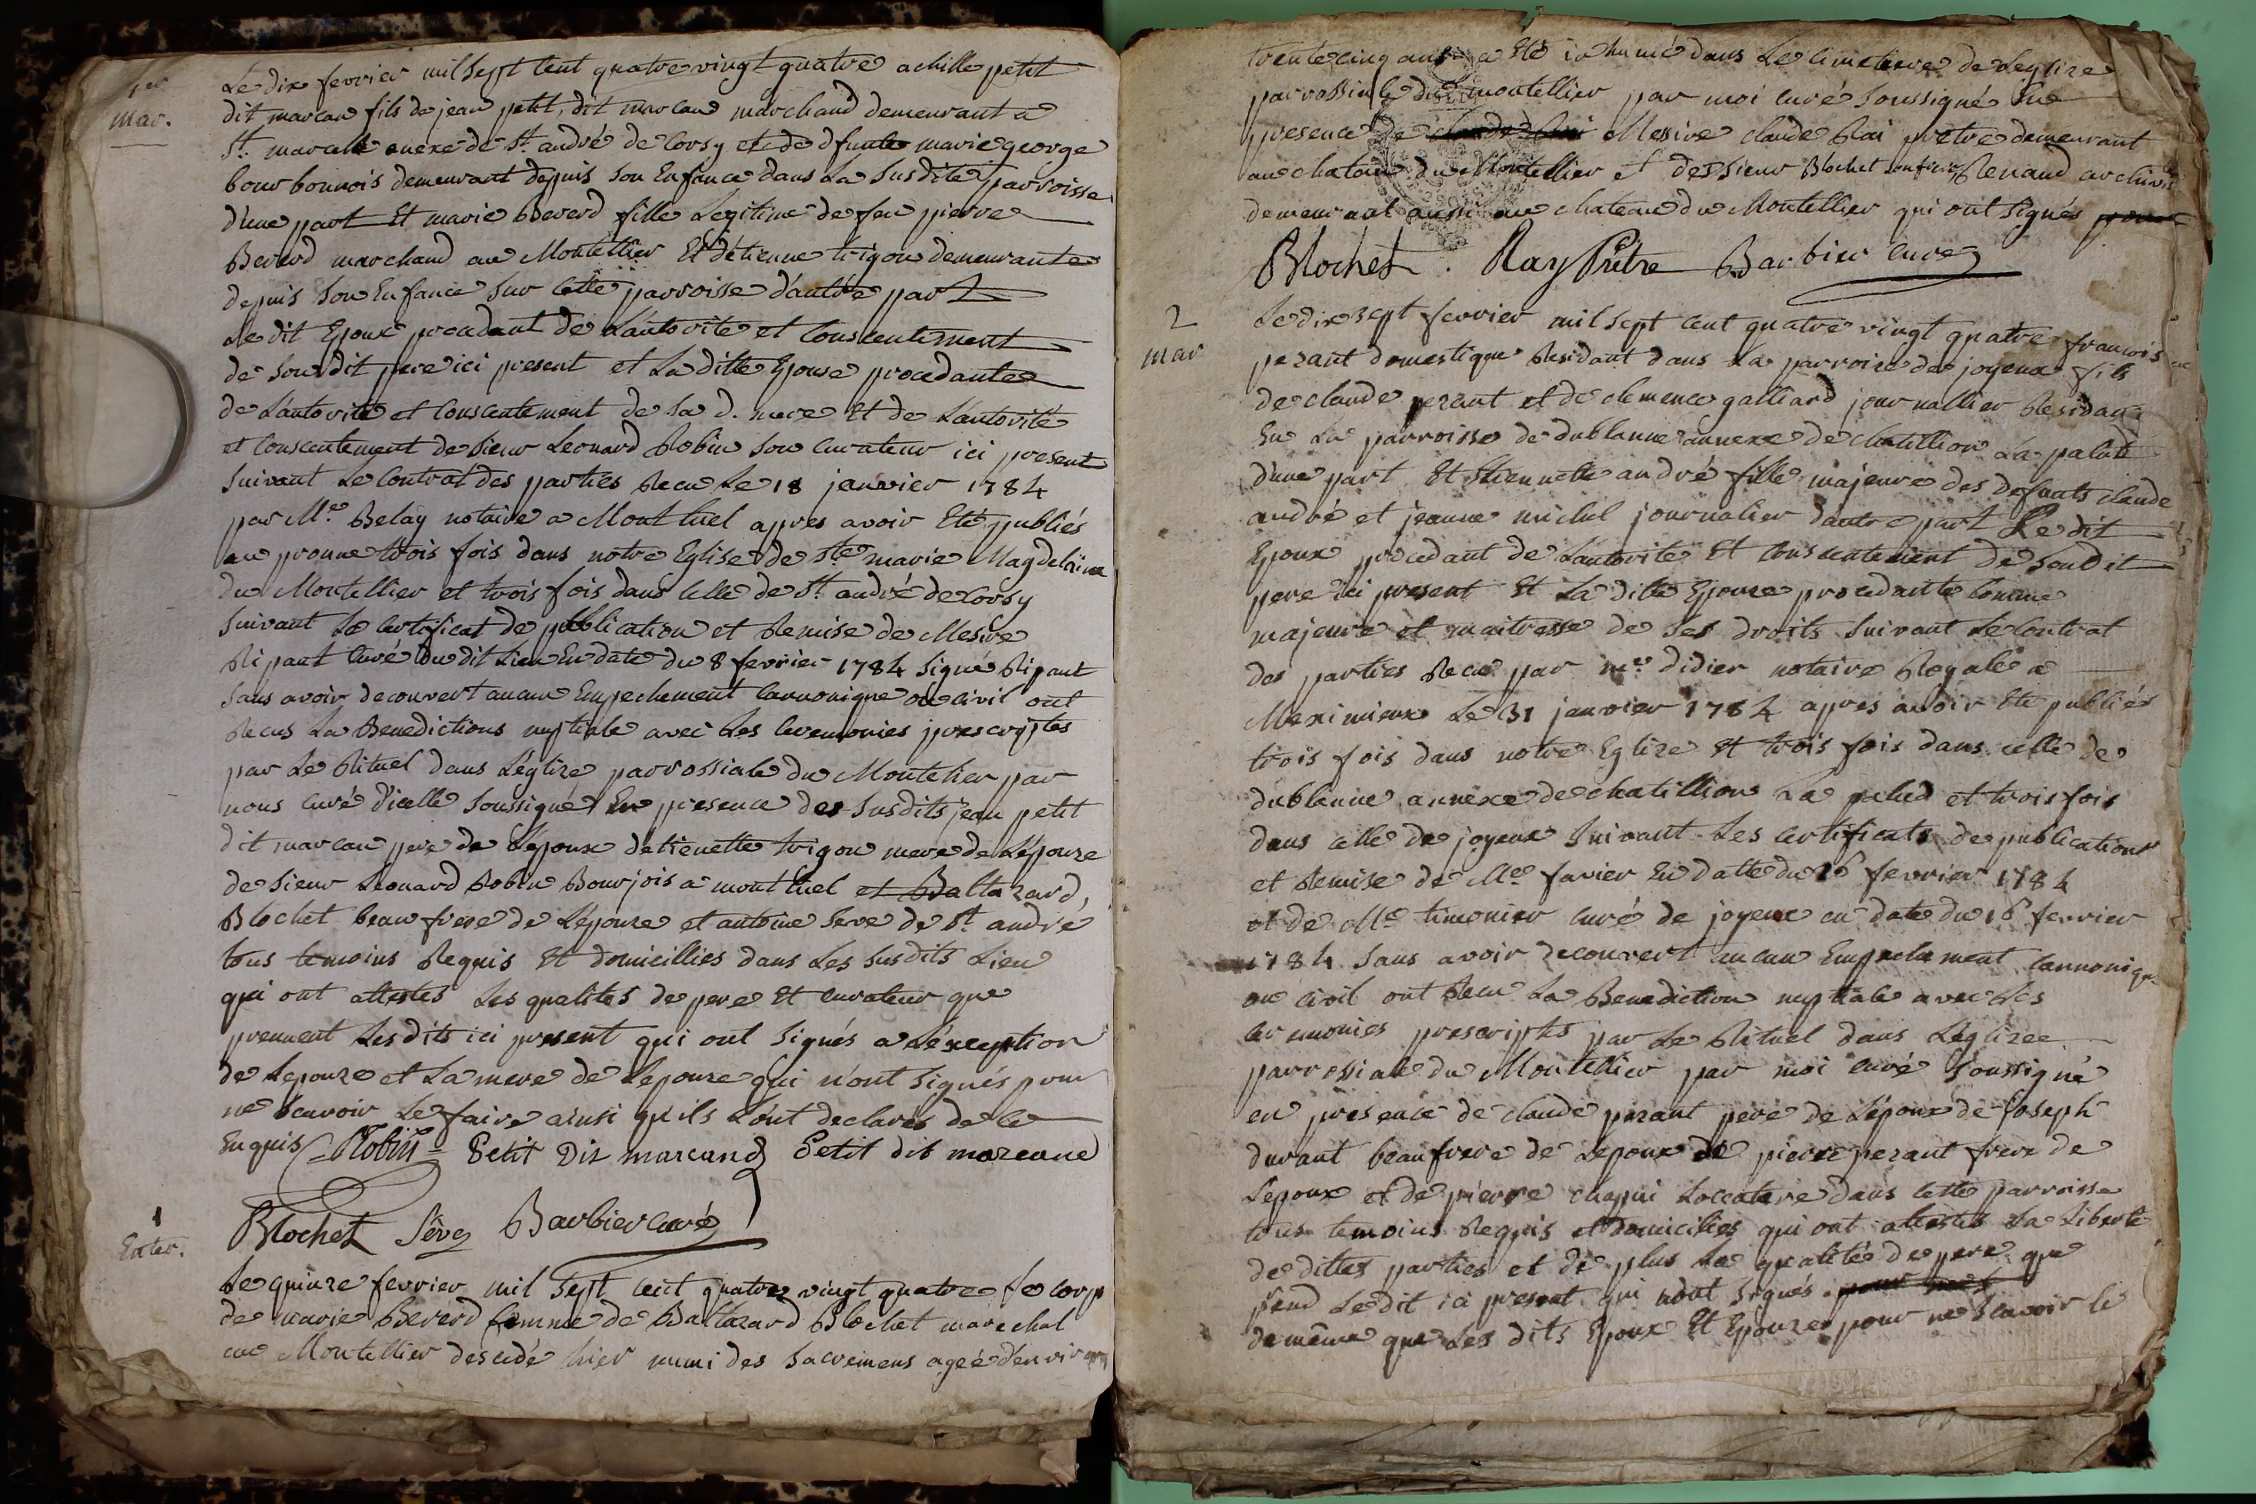 1er
mar.
Le dix fevrier mil sept cent quatre vingt quatre achille petit
dit marcan fils de jean petit, dit marcan marchand demeurant a
St. marcel anexe de St. andré de Corsy et de dfunte marie george
bourbonnois demeurant depuis son Enfance dans La susdite parroisse
d'une part Et marie Beverd fille Legitime de feu pierre
Beverd marchand au Montellier Et d'étienne trigon demeurante
depuis son Enfance sur cette parroisse d'autre part
Le dit Epoux procedant de L'autorité et Consentement
de son dit pere ici present et La ditte Epouse procedante
de L'autorité et Consentement de sa d. mere Et de L'autorité
et Consentement de sieur Leonard Robin son curateur ici present
suivant Le Contrat des parties Recu Le 18 janvier 1784
par Me. Belay notaire a Montluel apres avoir Eté publiés
au pronne trois fois dans notre Eglise de ste marie Magdelaine
du Montellier et trois fois dans celle de St. andré de Corsy
suivant Le certificat de publication et Remise de Messire
Ripant Curé du dit Lieu En date du 8 fevrier 1784 signé Ripant
sans avoir decouvert aucun Empechement Cannonique ou civil ont
Recus La Benedictions nuptiale avec Les Ceremonies prescriptes
par Le Rituel dans L'eglize parrossiale du Montelier par
nous curé d'icelle soussigné En presence des susdits jean petit
dit marcan pere de L'epoux detienette trigon mere de L'épouze
de sieur Leonard Robin Bourjois a montluel et Baltazard
Blochet beaufrere de L'épouze et antoine seve de St. andré
tous temoins Requis Et domicilliés dans Les susdits Lieu
qui ont attestés Les qualités de pere Et curateur que
prennent Lesdits ici present qui ont signés a L'exception
de Lepouze et La mere de Lepouze qui n'ont signés pour
ne scavoir Le faire ainsi qu'ils L'ont declarés de ce
Enquis Robin Petit Dit marcand Petit dit marcand
Blochet Sève Barbier curé
1
Enter.
Le quinze fevrier mil sept cent quatre vingt quatre Le corp
de marie Beverd femme de Baltazard Blochet marechal
au Montellier descedé hier muni des sacremens ageé d'environ
trente cinq ans a Eté inhumé dans Le cimetiere de L'eglize
parrossiale du montellier par moi curé soussigné En
presence de Messire claude Rai prêtre demeurant
au chateau du Montellier et des sieur Blochet son frere Renaud archiviste
demeurant aussi au chateau du Montellier qui ont signés
Blochet. Ray Prêtre Barbier cure
2
mar
Le dix sept fevrier mil sept cent quatre vingt quatre francois
pezant domestique Residant dans La parroize de joyeux fils
de claude pezant et de clemence galliard journallier Residant
En La parroisse de dublanne annexe de chatillion La palud
d'une part Et Etiennette andré fille majeure des defunts claude
andré et jeanne michel journalier d'autre part Le dit
Epoux procedant de L'autorité Et Consentement de Sondit
pere ici present Et La ditte Epouze procedante Comme
majeure et maitresse de ses droits suivant Le Contrat
des parties Recu par me. didier notaire Royale a
Meximieux Le 31 janvier 1784 apres avoir Eté publiés
trois fois dans notre Eglize Et trois fois dans celle de
dublanne annexe de chatillion La palud et trois fois
dans celle de joyeux suivant Les certificats de publications
et Remise de Me favier En datte du 16 fevrier 1784
et de Me timonier curé de joyeux en date du 16 fevrier
1784 sans avoir decouvert aucun Empechement Cannonique
ou civil ont Recu La Benediction nuptiale avec Les
ceremonies prescriptes par Le Rituel dans L'eglize
parrossiale du Montellier par moi curé soussigné
en presence de claude pezant pere de L'époux de joseph
durant beaufrere de L'epoux de pierre pezant frere de
L'epoux et de pierre chapui Loccatere dans cette parroisse
tous temoins Requis et domiciliés qui ont attestés La Liberté
de dittes parties et de plus La qualitée de pere que
prend Ledit ici present qui n'ont signés
de même que Les dits Epoux Et Epouze pour ne scavoir le